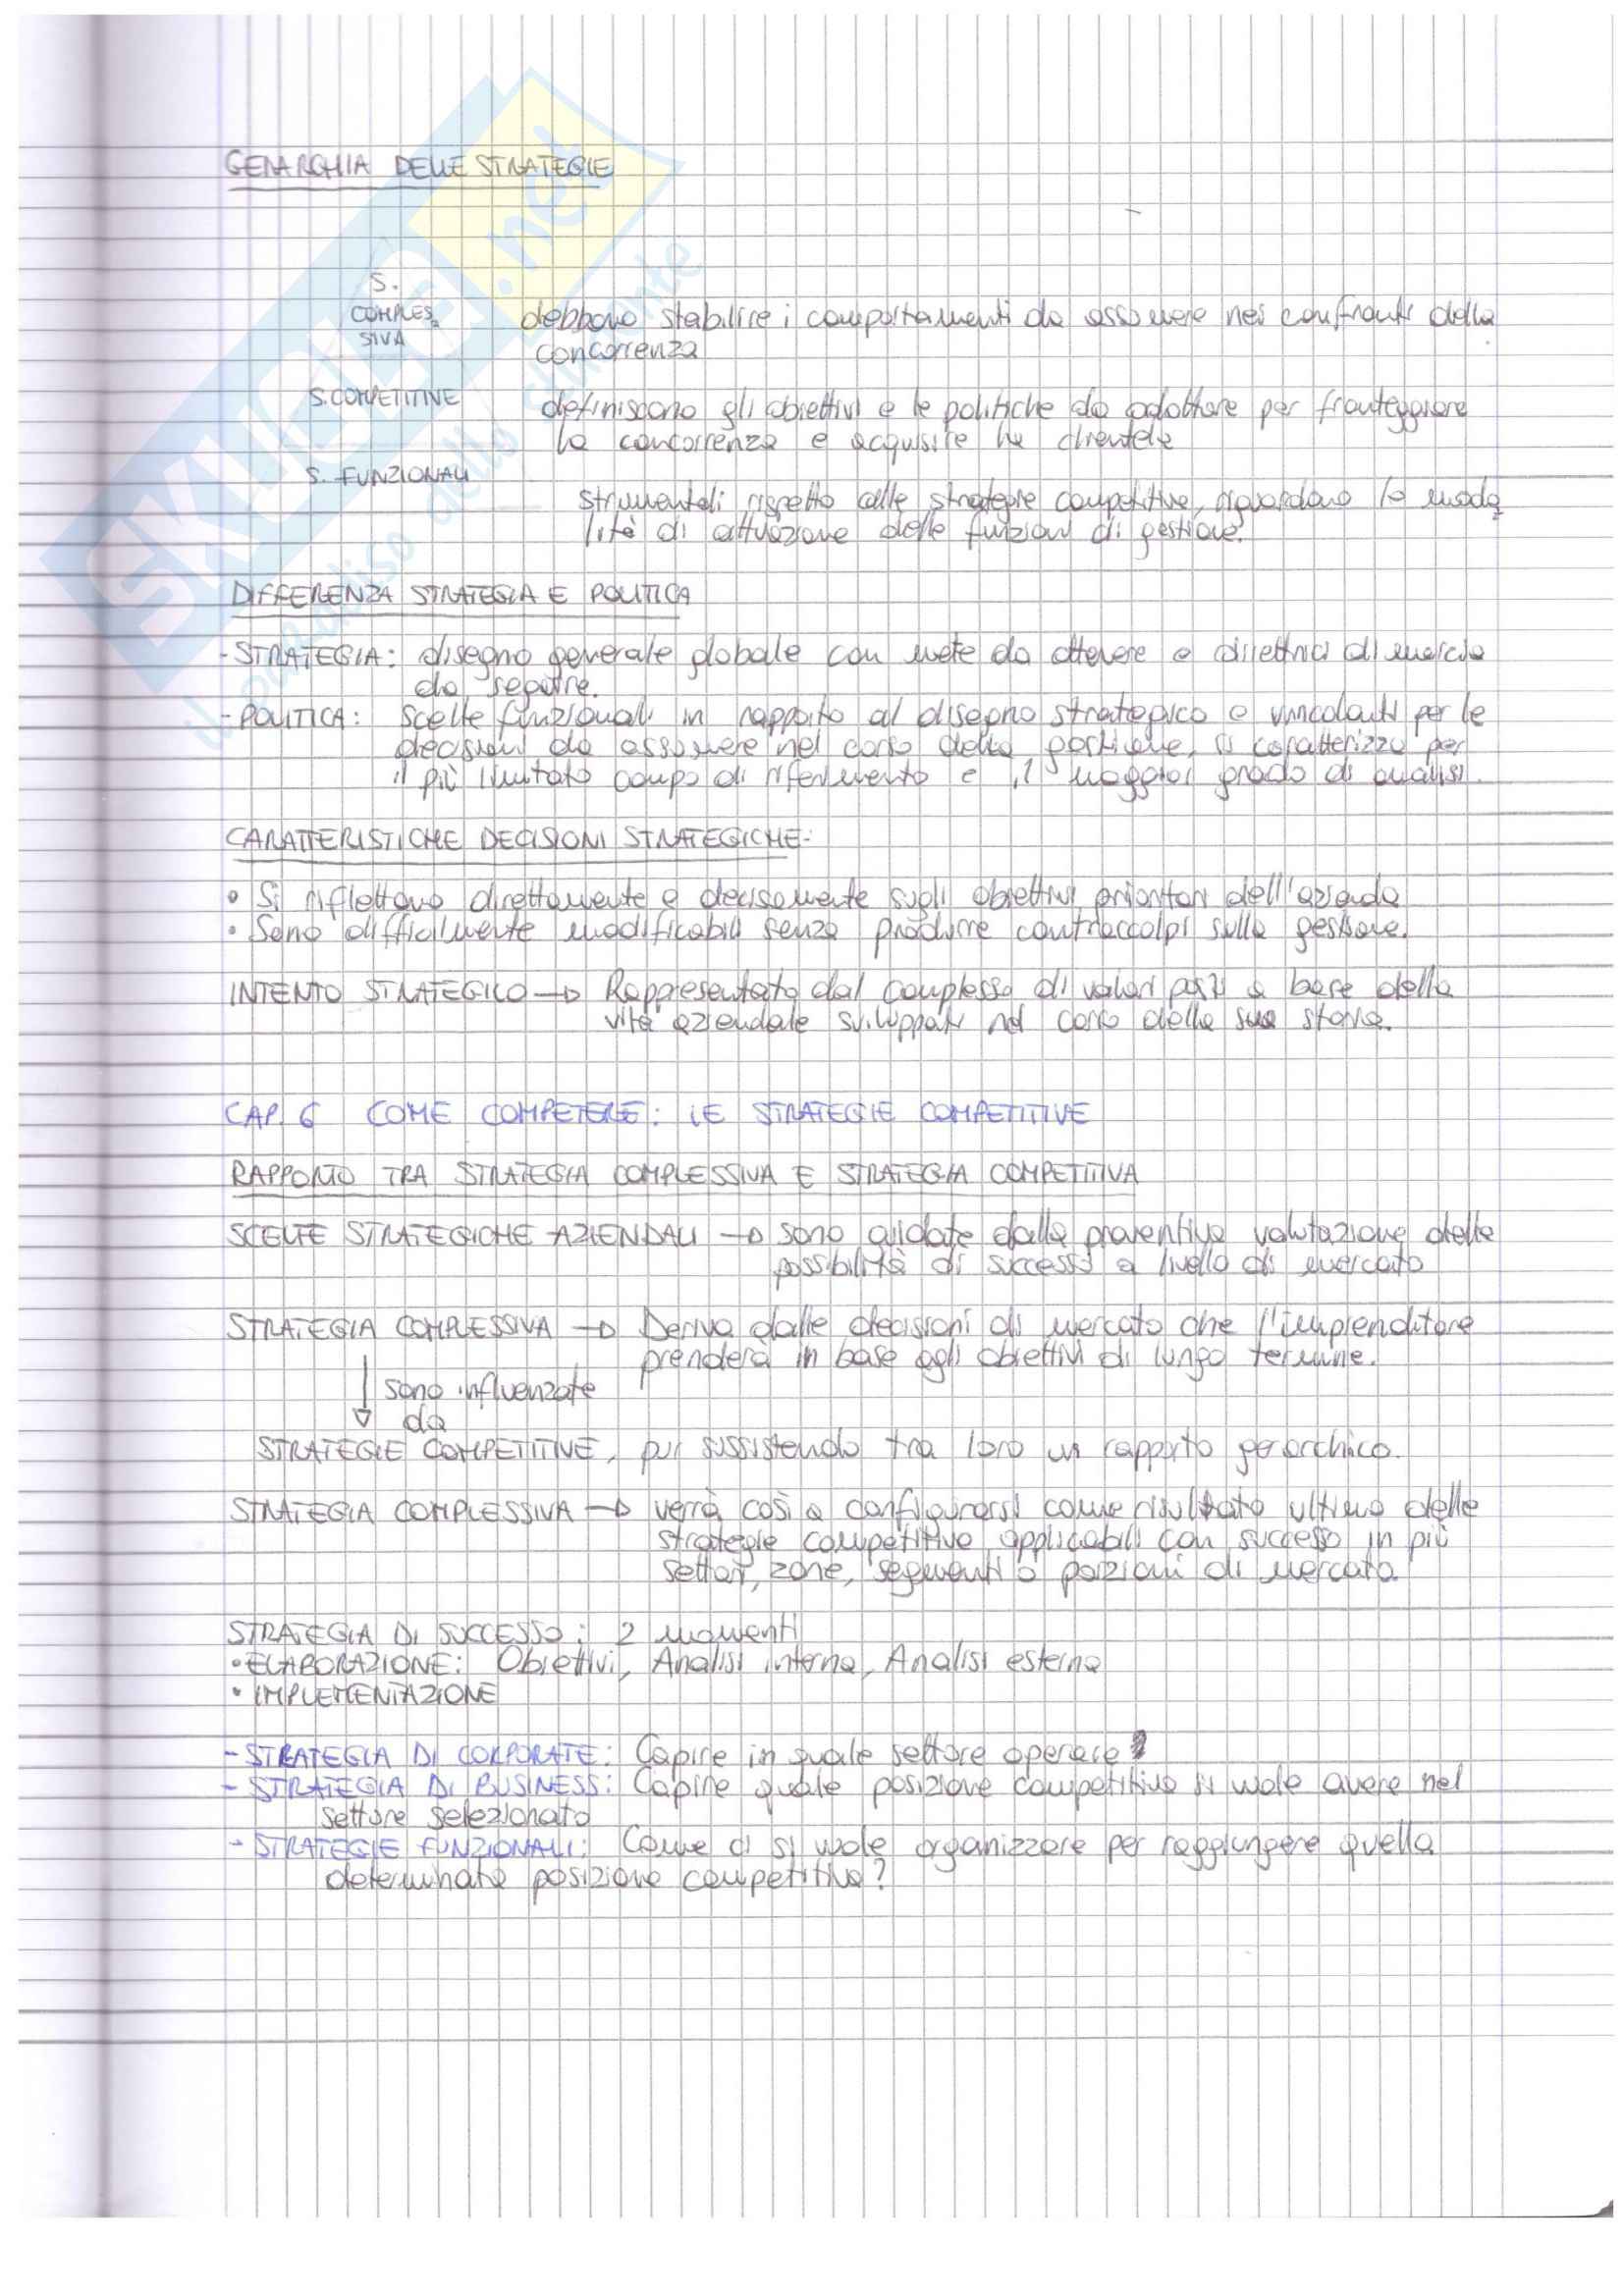 GERARCHIA DELLE STRATEGIE
S.
COMPLES
SIVA
debbono stabilire i comportamenti da assumere nei confronti della
concorrenza
S. COMPETITIVE
definiscono gli obiettivi e le politiche da adottare per fronteggiare
la concorrenza e acquisire la clientela
S. FUNZIONALI
strumentali rispetto alle strategie competitive, riguardano le moda
lità di attuazione delle funzioni di gestione.
DIFFERENZA STRATEGIA E POLITICA
- STRATEGIA: disegno generale globale con mete da ottenere e direttrici di marcia
da seguire.
- POLITICA: scelte funzionali in rapporto al disegno strategico e vincolanti per le
decisioni da assumere nel corso della gestione, si caratterizza per
il più limitato campo di riferimento e il maggior grado di analisi.
CARATTERISTICHE DECISIONI STRATEGICHE:
• Si riflettono direttamente e decisamente sugli obiettivi prioritari dell'azienda
• Sono difficilmente modificabili senza produrre contraccolpi sulla gestione.
INTENTO STRATEGICO → Rappresentato dal complesso di valori posti a base della
vita aziendale sviluppati nel corso della sua storia.
CAP. 6 COME COMPETERE: LE STRATEGIE COMPETITIVE
RAPPORTO TRA STRATEGIA COMPLESSIVA E STRATEGIA COMPETITIVA
SCELTE STRATEGICHE AZIENDALI → sono guidate dalla preventiva valutazione delle
possibilità di successo a livello di mercato
STRATEGIA COMPLESSIVA → Deriva dalle decisioni di mercato che l'imprenditore
prenderà in base agli obiettivi di lungo termine.
sono influenzate
da
STRATEGIE COMPETITIVE, pur sussistendo tra loro un rapporto gerarchico.
STRATEGIA COMPLESSIVA → verrà così a configurarsi come risultato ultimo delle
strategie competitive applicabili con successo in più
settori, zone, segmenti o porzioni di mercato.
STRATEGIA DI SUCCESSO: 2 momenti
• ELABORAZIONE: Obiettivi, Analisi interna, Analisi esterna
• IMPLEMENTAZIONE
- STRATEGIA DI CORPORATE: Capire in quale settore operare
- STRATEGIA DI BUSINESS: Capire quale posizione competitiva si vuole avere nel
settore selezionato
- STRATEGIE FUNZIONALI: Come ci si vuole organizzare per raggiungere quella
determinata posizione competitiva?
SKUOLA.net
il paradiso dello studente